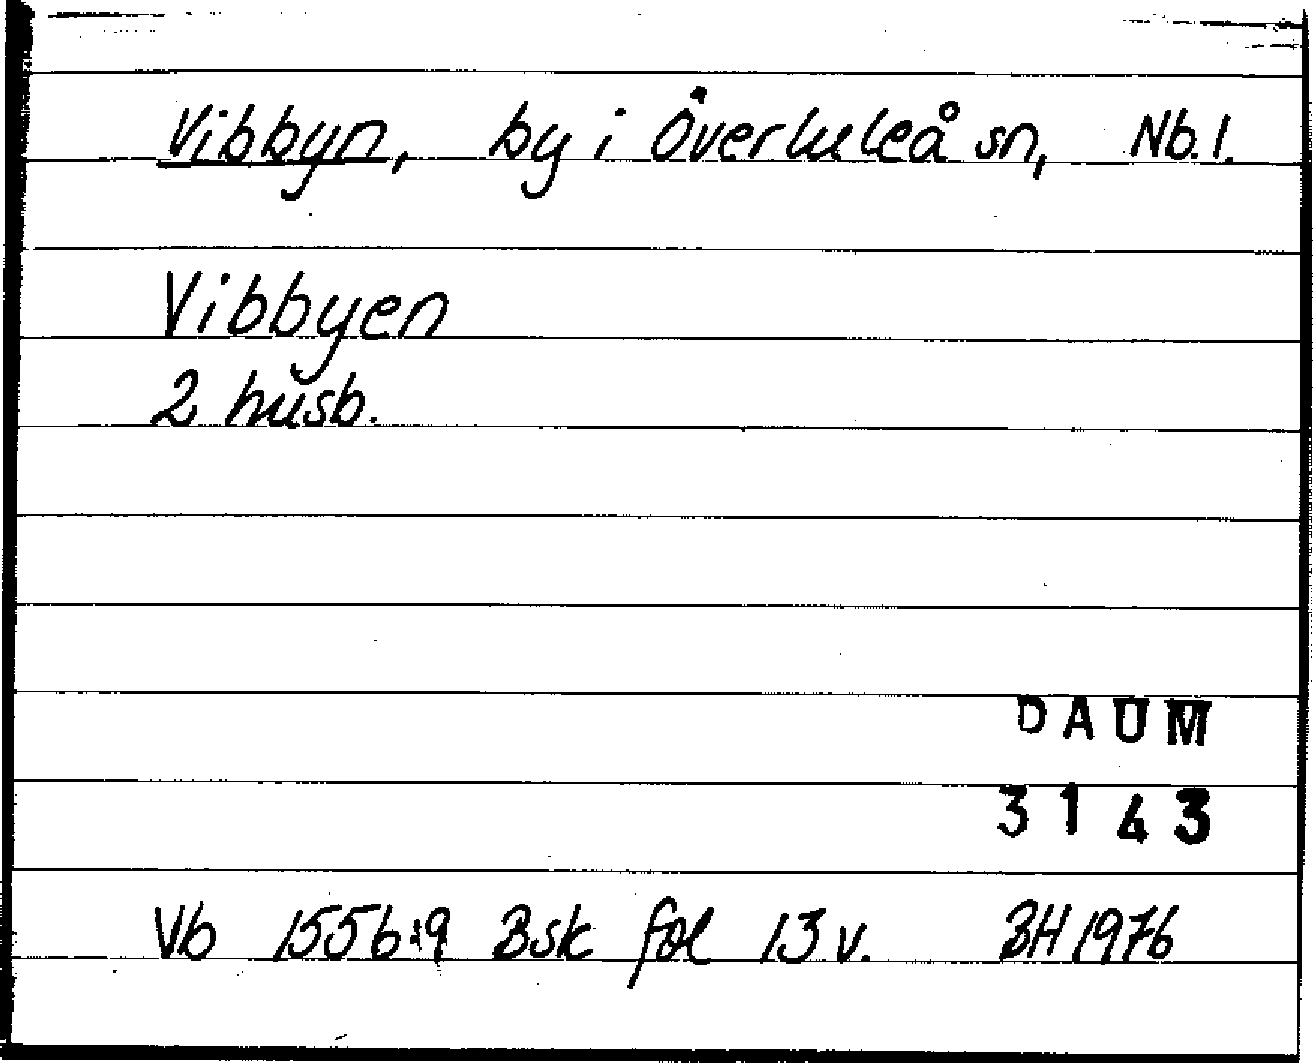 Vibbyn, by i Överluleå sn, Nb. l.
Vibbyen
2 husb.
DAUM
3143
Vb 1556:9 Bsk fol 13 v. BH 1976